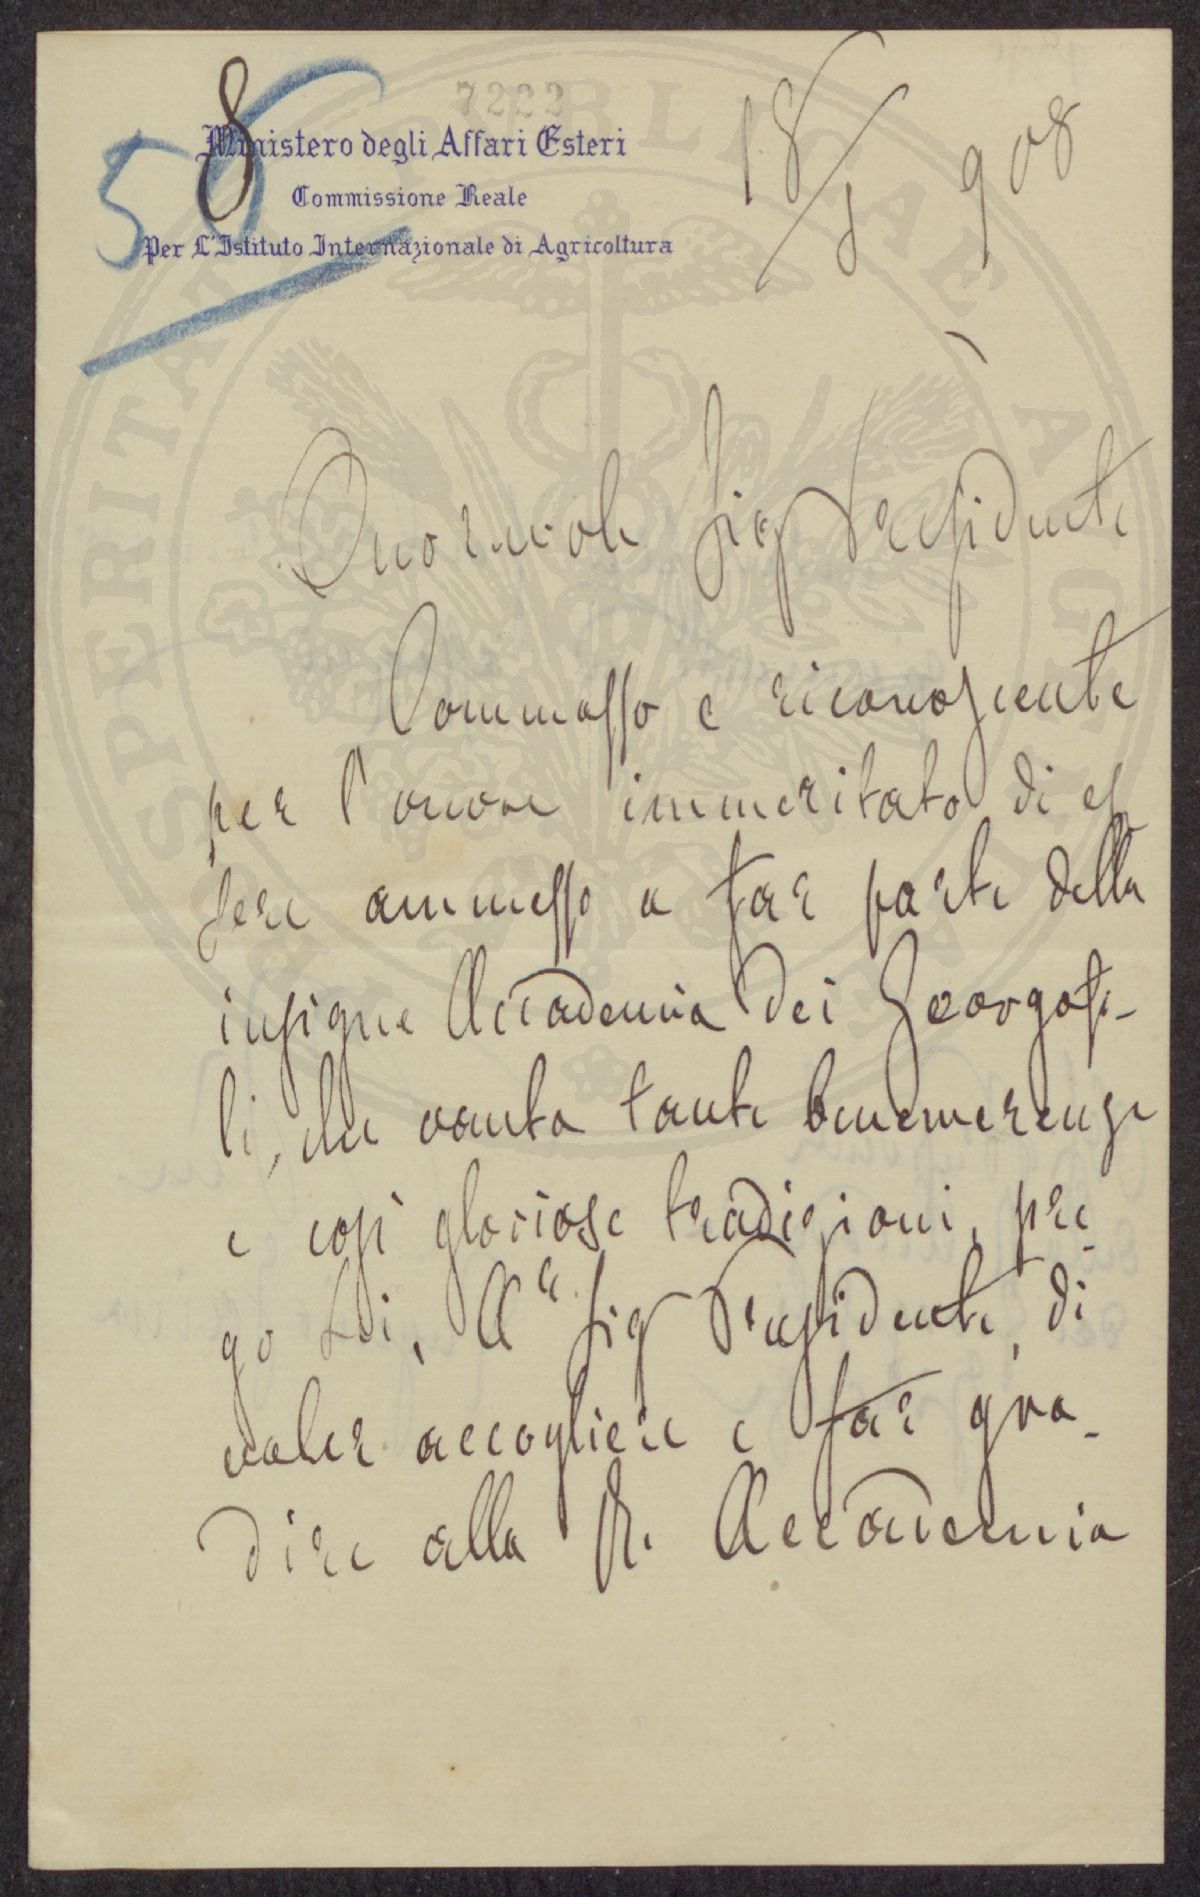 7222
8
56
Ministero degli Affari Esteri
Commissione Reale
Per L'Istituto Internazionale di Agricoltura
18/1 908
Onorevole Sig Presidente
Commosso e riconoscente
per l'onore immeritato di es
sere ammesso a far parte della
insigne Accademia dei Georgofi-
li, che vanta tante benemerenze
e così gloriose tradizioni, pre
go Lei, Ill Sig Presidente, di
voler accogliere e far gra-
dire alla R. Accademia